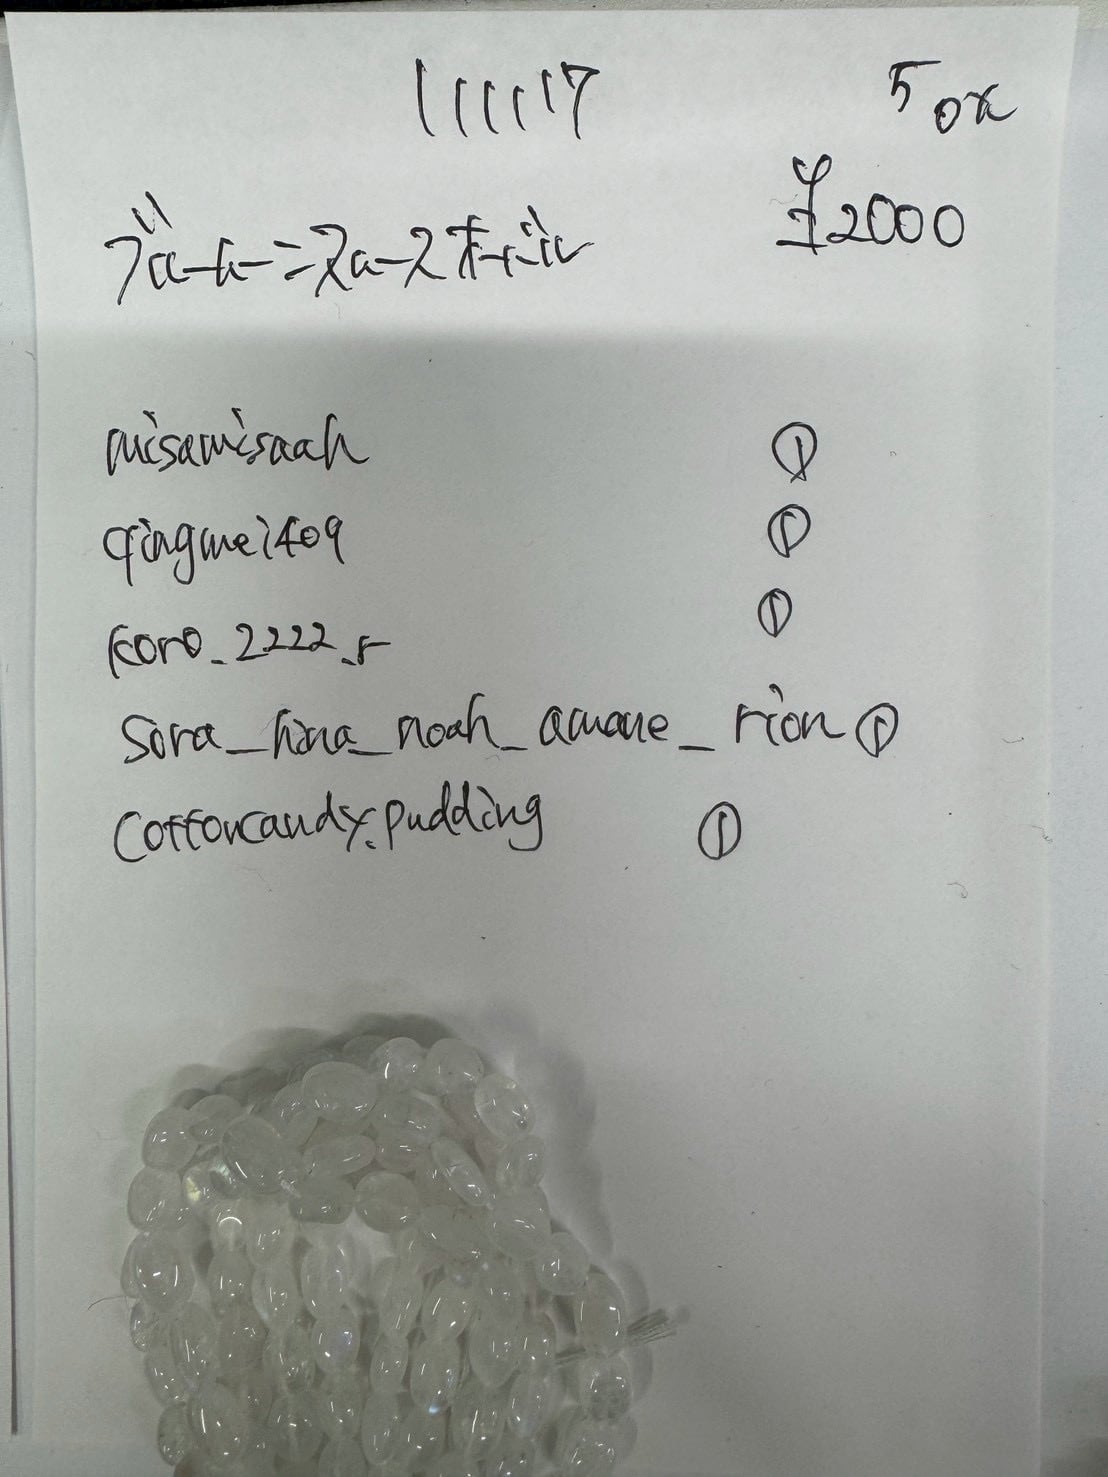 111117
5 ox
¥2000
ブルームーンストーンオーバル
misamisaah
①
qingmei409
①
koro_2222_r
①
sora_hina_noah_amane_rion ①
cottoncandy.pudding ①